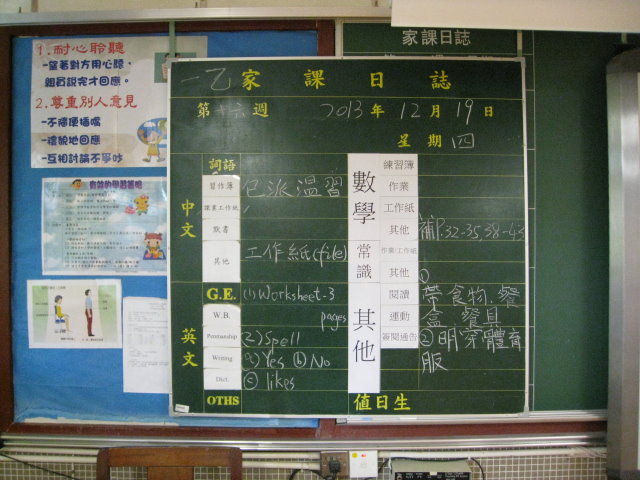 1. 耐心聆聽
－望著對方用心聽，
組員說完才回應。
2. 尊重別人意見
－不隨便插嘴
－禮貌地回應
－互相討論不爭吵
有效的學習策略
家課日誌
一乙家課日誌
第十六週 2013年12月19日
星期四
中文
詞語
習作簿 已派溫習
課業工作紙
默書
其他 工作紙(file)
英文
G.E. (1) Worksheet-3
W.B. pages
Penmanship (2) Spell
Writing (a) Yes (b) No
Dict. (c) likes
OTHS
數學
練習簿
作業
工作紙
其他 補P.32-35,38-43
常識
作業/工作紙
其他 ①
其他
閱讀 帶食物、餐
運動 盒、餐具
簽閱通告 ②明穿體育
服
值日生